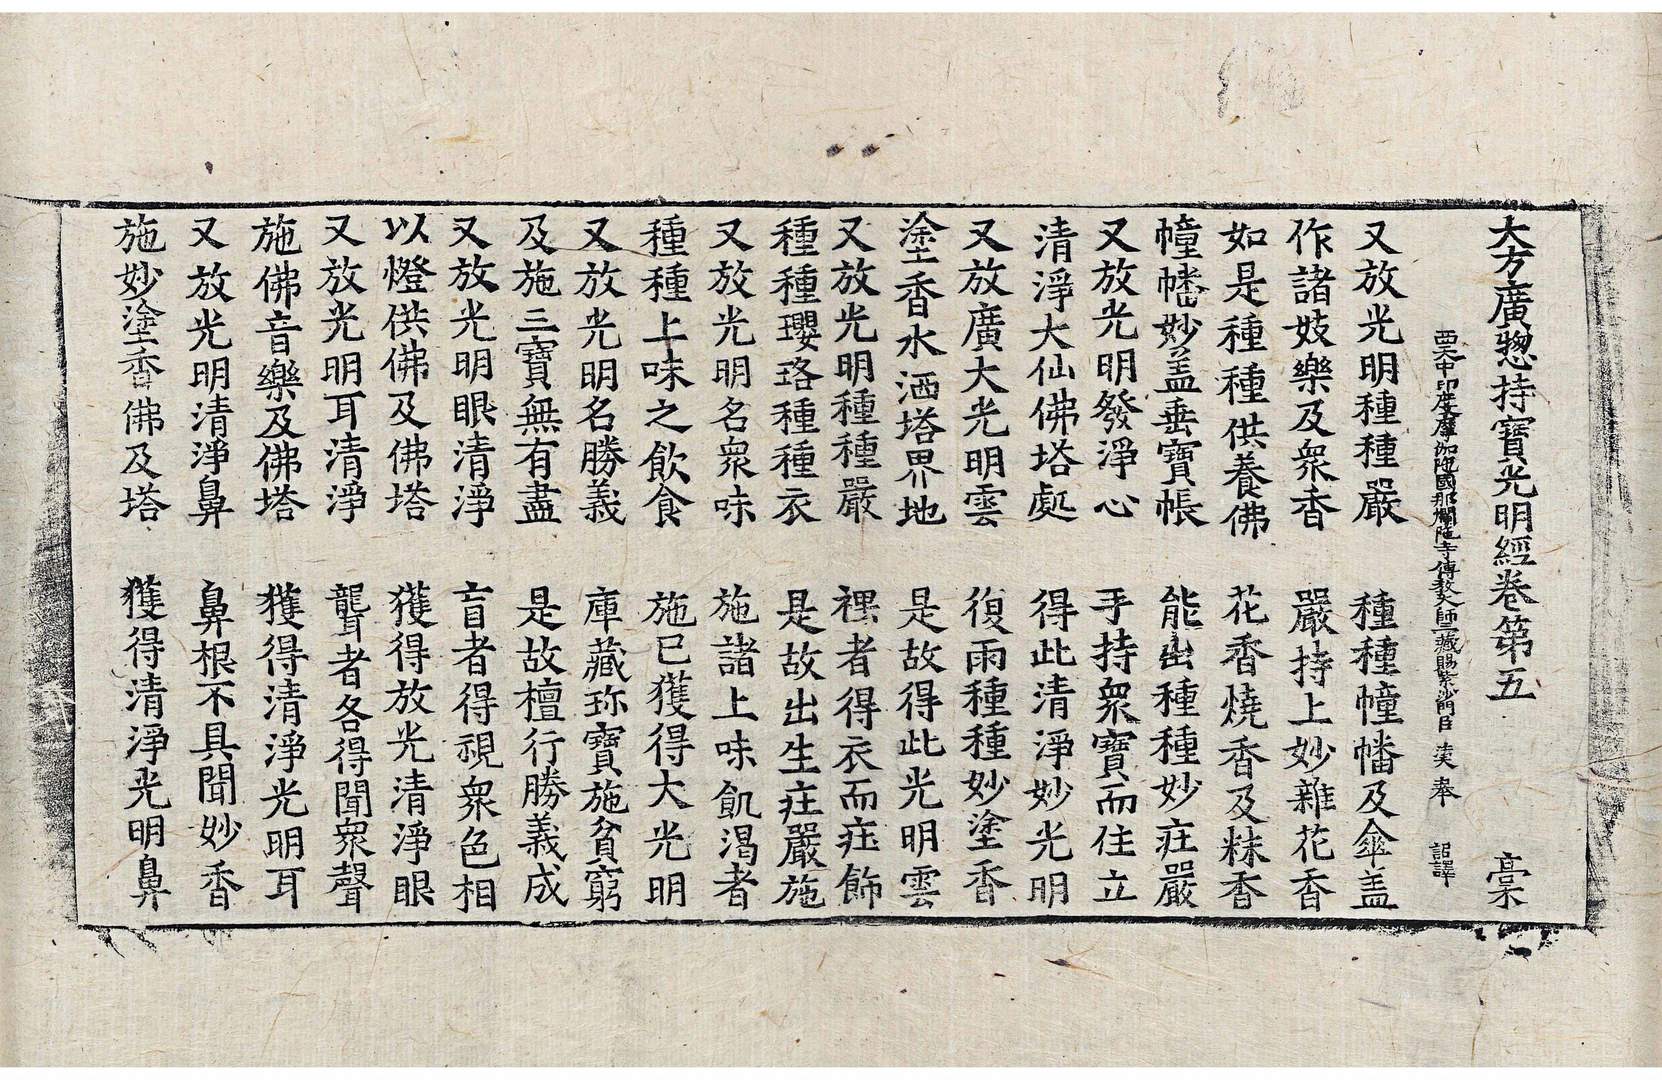 大方廣惣持寶光明經卷第五 槀
西天中印度摩伽陁國那爛陁寺傳教大師三藏賜紫沙門臣 法天 奉 詔譯
又放光明種種嚴 種種幢幡及傘盖
作諸妓樂及衆香 嚴持上妙雜花香
如是種種供養佛 花香燒香及粖香
幢幡妙盖垂寶帳 能出種種妙庄嚴
又放光明發淨心 手持衆寶而住立
清淨大仙佛塔處 得此清淨妙光明
又放廣大光明雲 復雨種種妙塗香
塗香水洒塔界地 是故得此光明雲
又放光明種種嚴 裸者得衣而庄飾
種種瓔珞種種衣 是故出生庄嚴施
又放光明名衆味 施諸上味飢渴者
種種上味之飲食 施已獲得大光明
又放光明名勝義 庫藏珎寶施貧窮
及施三寶無有盡 是故檀行勝義成
又放光明眼清淨 盲者得視衆色相
以燈供佛及佛塔 獲得放光清淨眼
又放光明耳清淨 聾者各得聞衆聲
施佛音樂及佛塔 獲得清淨光明耳
又放光明清淨鼻 鼻根不具聞妙香
施妙塗香佛及塔 獲得清淨光明鼻